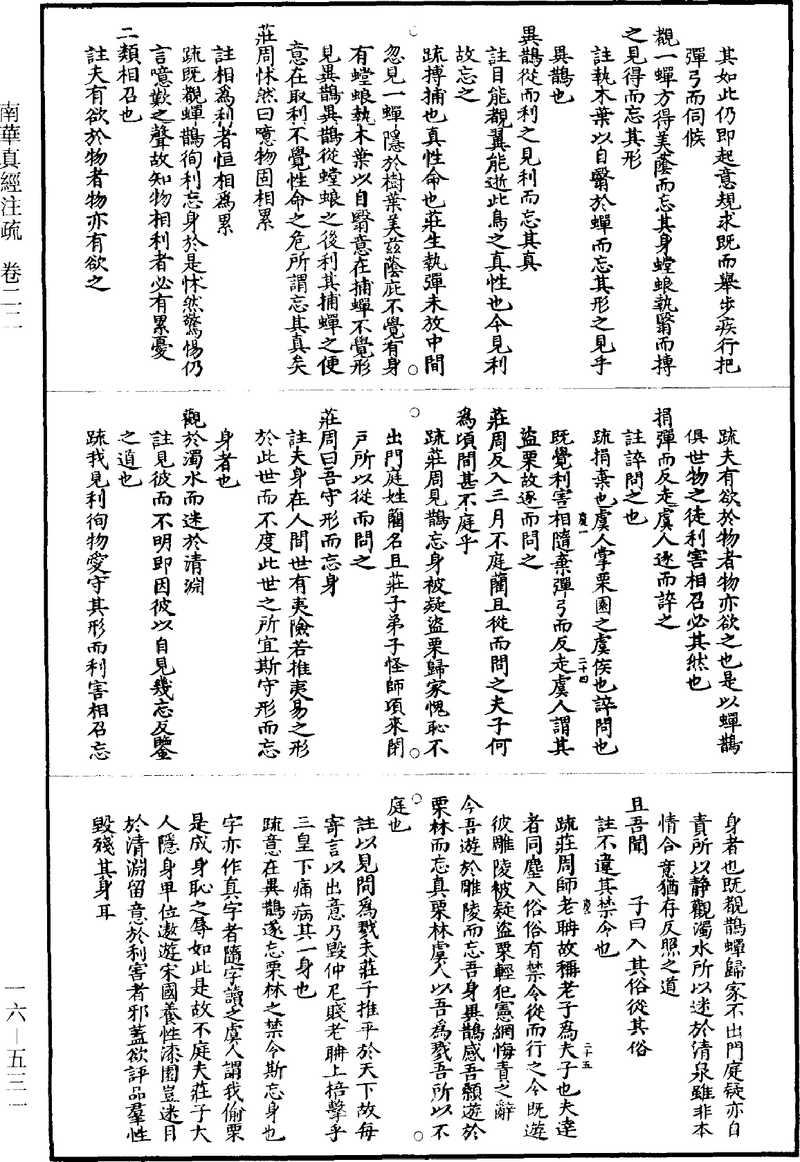 南華真經注疏　卷二二
其如此仍即起意規求既而舉步疾行把
彈弓而伺候
覩一蟬方得美蔭而忘其身螳蜋執翳而搏
之見得而忘其形
註執木葉以自翳於蟬而忘其形之見乎
異鵲也
異鵲從而利之見利而忘其真
註目能覩翼能逝此鳥之真性也今見利
故忘之
疏搏捕也真性命也莊生執彈未放中間
忽見一蟬隱於樹葉美茲蔭庇不覺有身
有螳蜋執木葉以自翳意在捕蟬不覺形
見異鵲異鵲從螳蜋之後利其捕蟬之便
意在取利不覺性命之危所謂忘其真矣
莊周怵然曰噫物固相累
註相為利者恒相為累
疏既覩蟬鵲徇利忘身於是怵然驚惕仍
言噫歎之聲故知物相利者必有累憂
二類相召也
註夫有欲於物者物亦有欲之
疏夫有欲於物者物亦欲之也是以蟬鵲
俱世物之徒利害相召必其然也
捐彈而反走虞人逐而誶之
註誶問之也
疏捐棄也虞人掌栗園之虞候也誶問也
既覺利害相隨棄彈弓而反走虞人謂其
盜栗故逐而問之
莊周反入三月不庭藺且從而問之夫子何
為頃間甚不庭乎
疏莊周見鵲忘身被疑盜栗歸家愧恥不
出門庭姓藺名且莊子弟子怪師頃來閉
戶所以從而問之
莊周曰吾守形而忘身
註夫身在人間世有夷險若推夷易之形
於此世而不度此世之所宜斯守形而忘
身者也
觀於濁水而迷於清淵
註見彼而不明即因彼以自見幾忘反鑒
之道也
疏我見利徇物愛守其形而利害相召忘
二十四
身者也既覩鵲蟬歸家不出門庭疑亦自
責所以静觀濁水所以迷於清泉雖非本
情合意猶存反照之道
且吾聞　子曰入其俗從其俗
註不違其禁令也
疏莊周師老聃故稱老子為夫子也夫達
者同塵入俗俗有禁令從而行之今既遊
彼雕陵被疑盜栗輕犯憲綱悔責之辭
今吾遊於雕陵而忘吾身異鵲感吾顙遊於
栗林而忘真栗林虞人以吾為戮吾所以不
庭也
註以見問為戮夫莊子推平於天下故每
寄言以出意乃毀仲尼賤老聃上掊擊乎
三皇下痛病其一身也
疏意在異鵲遂忘栗林之禁令斯忘身也
字亦作真字者隨字讀之虞人謂我偷栗
是成身恥之辱如此是故不庭夫莊子大
人隱身卑位遨遊宋國養性漆園豈迷目
於清淵留意於利害者邪蓋欲評品羣性
毀殘其身耳
二十五
一六—五三一